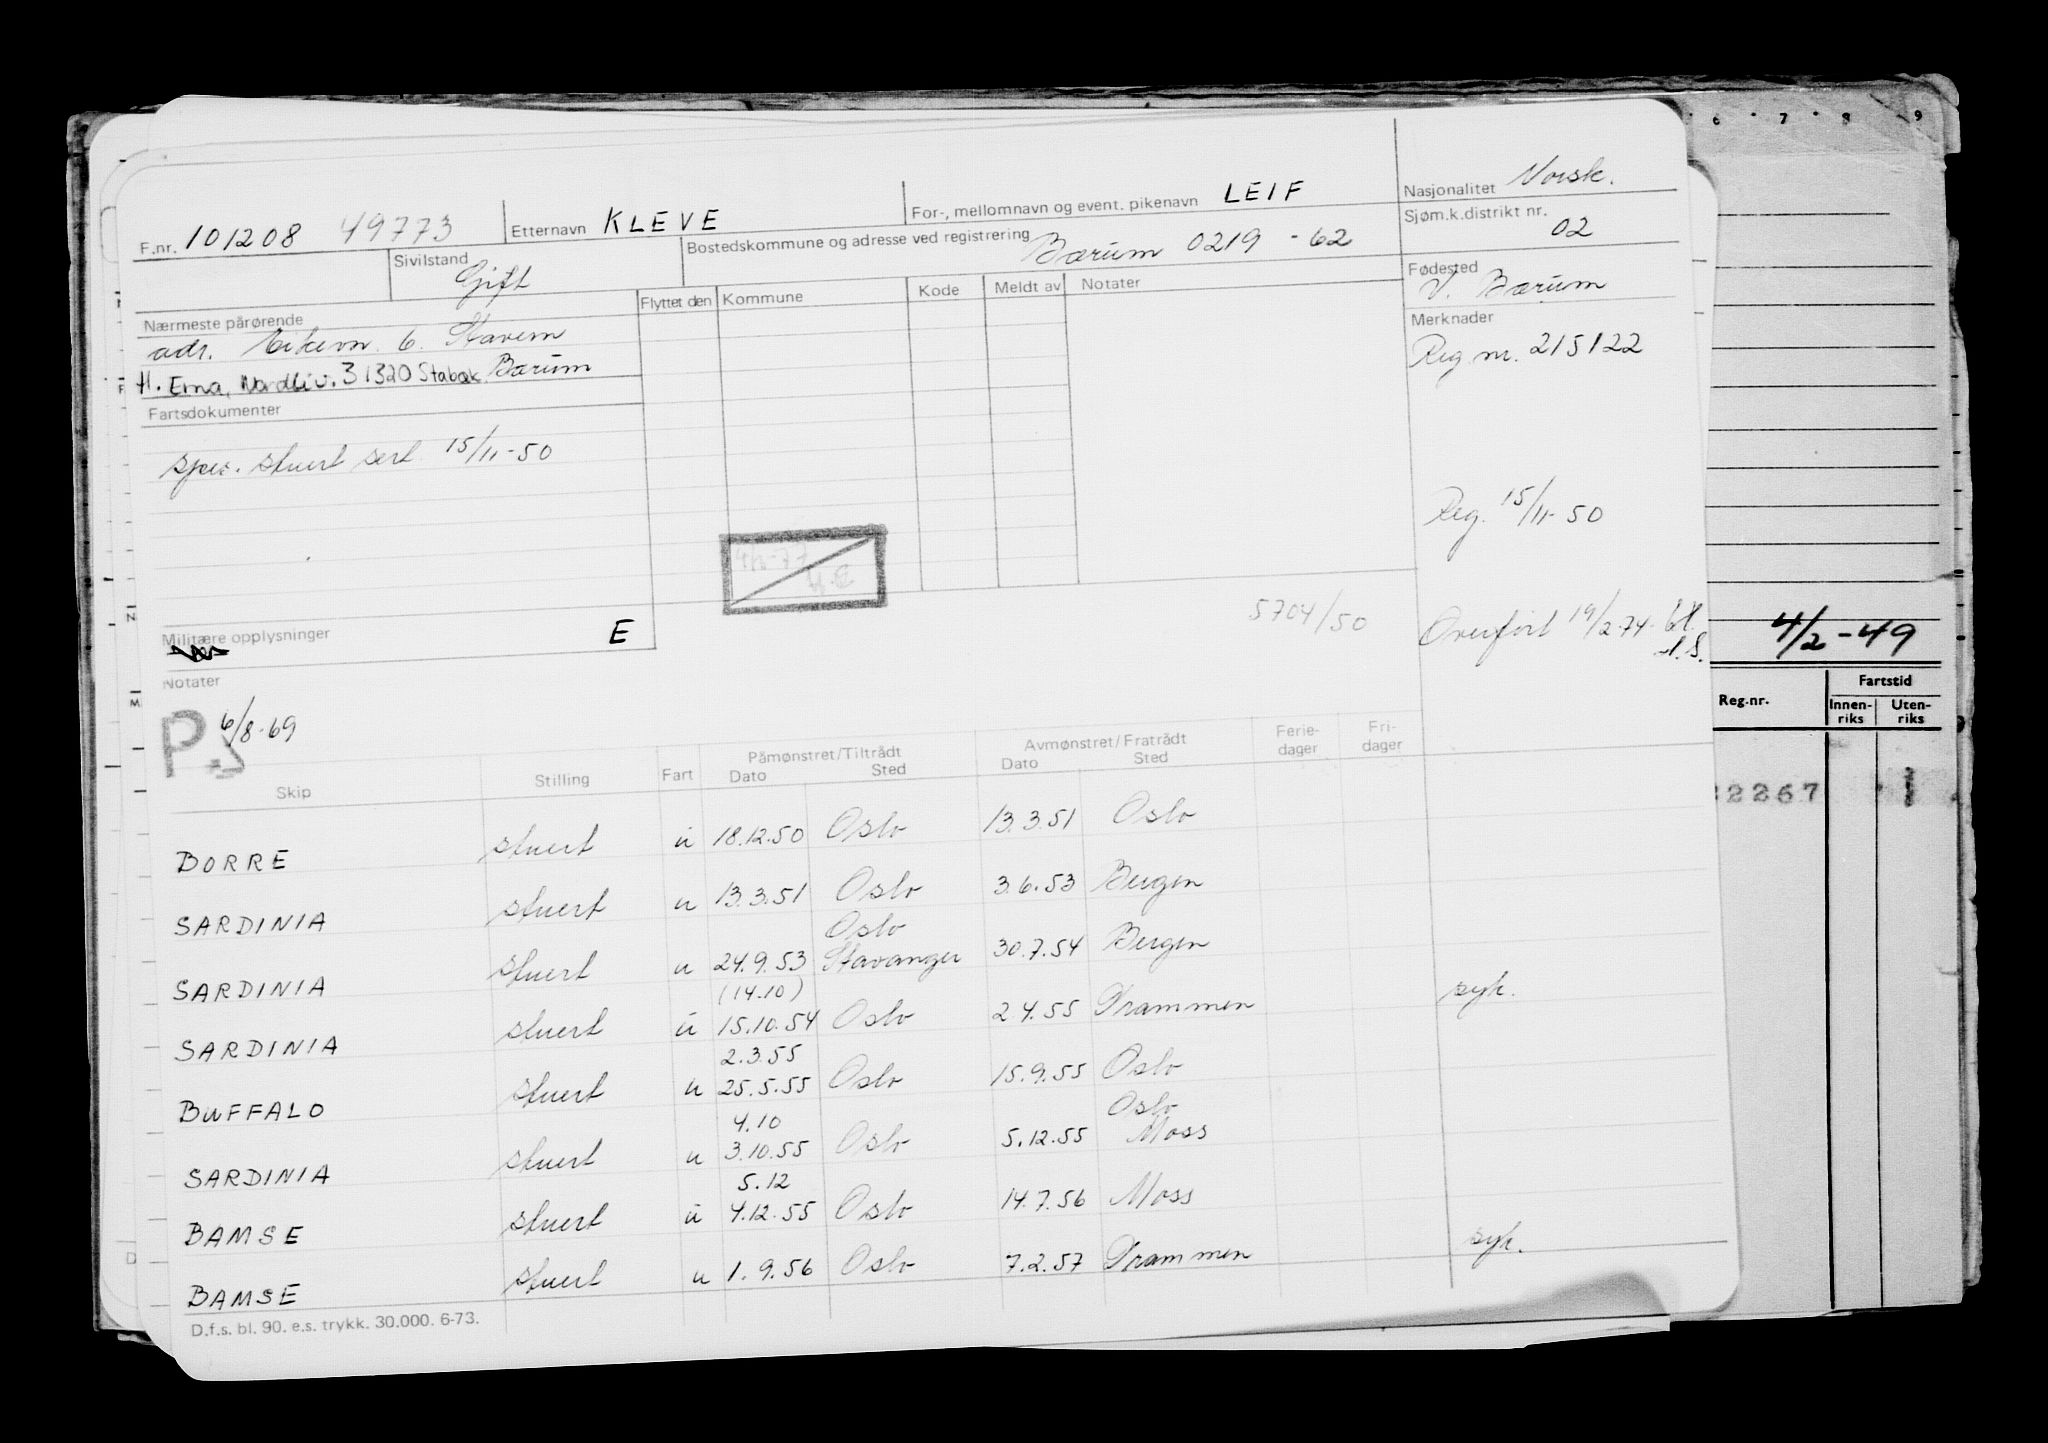 F.nr. 101208 49773
Etternavn KLEVE
For-, mellomnavn og event. pikenavn LEIF
Nasjonalitet Norsk.
Sjøm.k.distrikt nr. 02
Sivilstand Gift
Bostedskommune og adresse ved registrering Bærum 0219 - 62
Fødested V. Bærum
Nærmeste pårørende
adr. Eikevn. 6. Stavern
H. Erna, Nordliv. 3 1320 Stabæk. Bærum
Flyttet den Kommune Kode Meldt av Notater
Merknader
Reg nr. 215122
Fartsdokumenter
spes. stuert sert. 15/11-50
Reg. 15/11-50
5704/50
Overført 19/2.74.
Militære opplysninger E
Notater
P 6/8-69
Skip Stilling Fart Påmønstret/Tiltrådt Dato Sted Avmønstret/Fratrådt Dato Sted Ferie-dager Fri-dager
BORRE stuert u 18.12.50 Oslo 13.3.51 Oslo
SARDINIA stuert u 13.3.51 Oslo 3.6.53 Bergen
Oslo
SARDINIA stuert u 24.9.53 Stavanger 30.7.54 Bergen
(14.10)
SARDINIA stuert u 15.10.54 Oslo 2.4.55 Drammen syk.
2.3.55
BUFFALO stuert u 25.5.55 Oslo 15.9.55 Oslo
4.10 Oslo
SARDINIA stuert u 3.10.55 Oslo 5.12.55 Moss
5.12
BAMSE stuert u 4.12.55 Oslo 14.7.56 Moss
BAMSE stuert u 1.9.56 Oslo 7.2.57 Drammen syk.
D.f.s. bl. 90. e.s. trykk. 30.000. 6-73.
6 7 8 9
4/2-49
Reg.nr. Fartstid
Innen-riks Uten-riks
2267